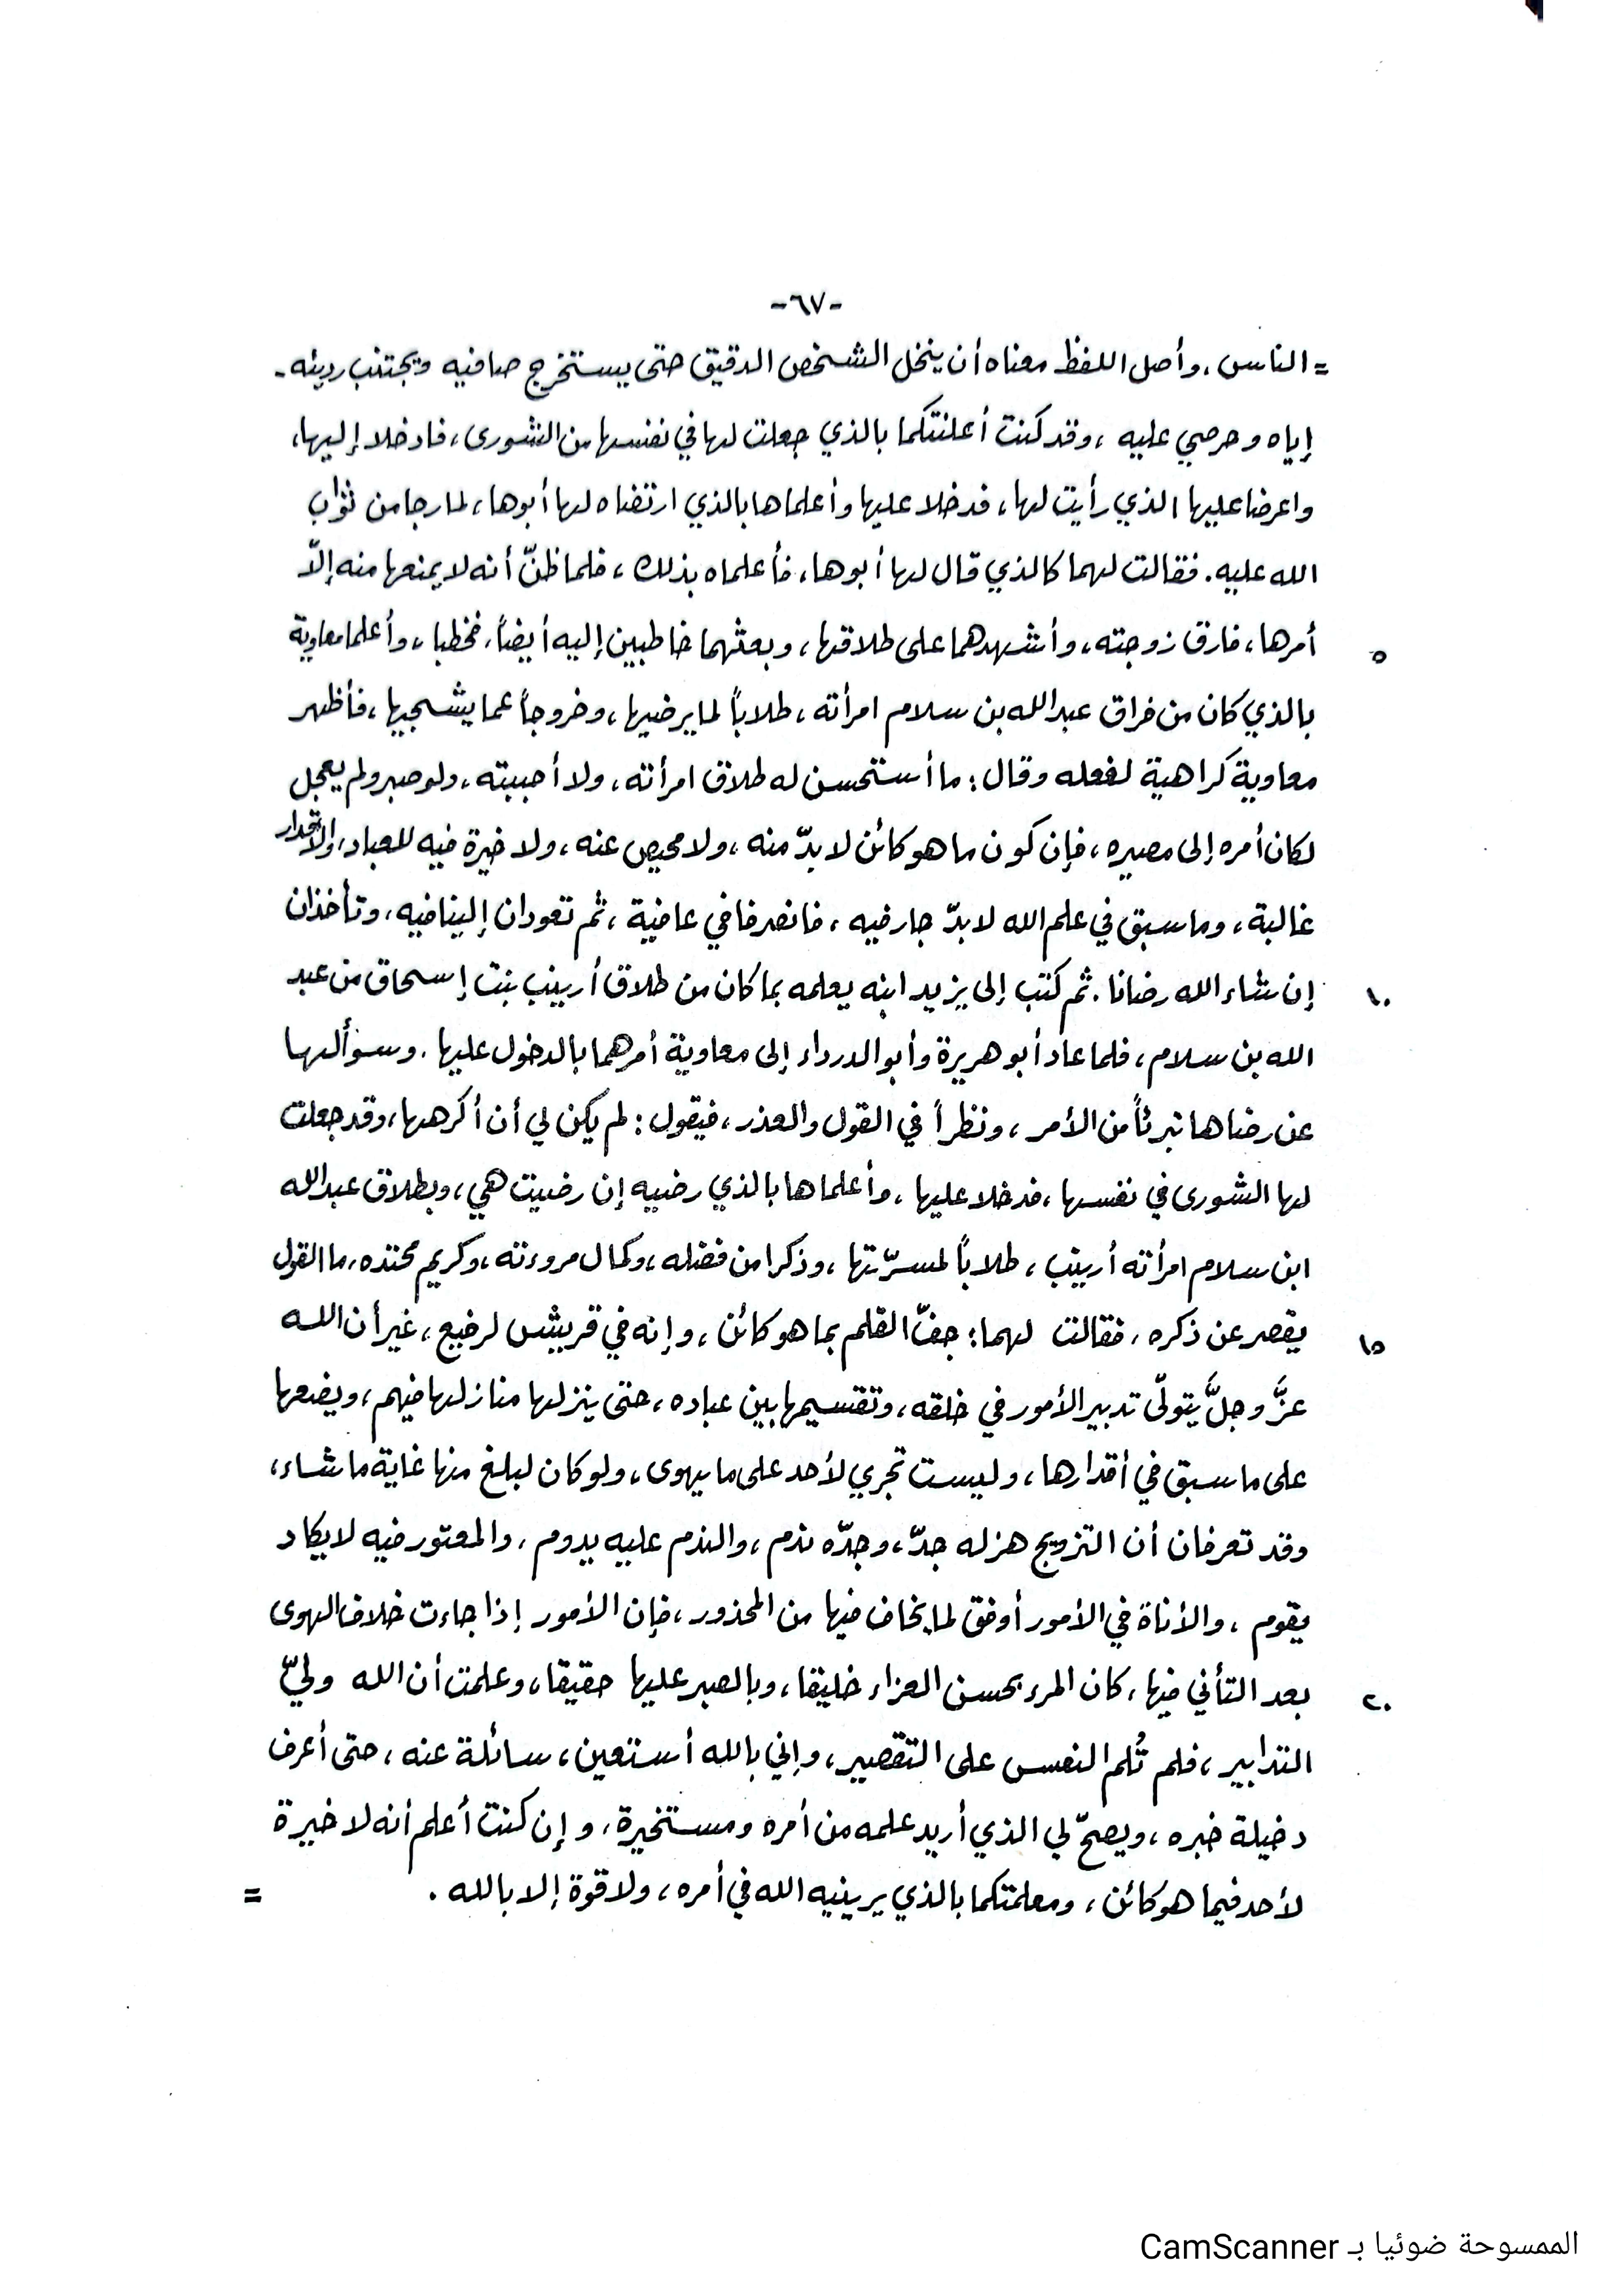 -٦٧-
= الناس، وأصل اللفظ معناه أن ينخل الشخص الدقيق حتى يستخرج صافيه ويجتنب رديئه -
إياه وحرصي عليه، وقد كنت أعلنتكما بالذي جعلت لها في نفسها من الشورى، فادخلا إليها،
واعرضا عليها الذي رأيت لها، فدخلا عليها وأعلماها بالذي ارتضاه لها أبوها، لما رجا من ثواب
الله عليه. فقالت لهما كالذي قال لها أبوها، فأعلماه بذلك، فلما ظنّ أنه لا يمنعها منه إلّا
أمرها، فارق زوجته، وأشهدهما على طلاقها، وبعثهما خاطبين إليه أيضاً، فخطبا، وأعلما معاوية
٥
بالذي كان من فراق عبد الله بن سلام امرأته، طلاباً لما يرضيها، وخروجاً عما يشجيها، فأظهر
معاوية كراهية لفعله وقال: ما أستحسن له طلاق امرأته، ولا أحببته، ولو صبر ولم يعجل
لكان أمره إلى مصيره، فإن كون ما هو كائن لا بدّ منه، ولا محيص عنه، ولا خيرة فيه للعباد، والأقدار
غالبة، وما سبق في علم الله لا بدّ جار فيه، فانصرفا في عافية، ثم تعودان إلينا فيه، وتأخذان
إن شاء الله رضانا. ثم كتب إلى يزيد ابنه يعلمه بما كان من طلاق أرينب بنت إسحاق من عبد
١٠
الله بن سلام، فلما عاد أبو هريرة وأبو الدرداء إلى معاوية أمرهما بالدخول عليها، وسؤالها
عن رضاها تبرئاً من الأمر، ونظراً في القول والعذر، فيقول: لم يكن لي أن أكرهها، وقد جعلت
لها الشورى في نفسها، فدخلا عليها، وأعلماها بالذي رضيه إن رضيت هي، وبطلاق عبد الله
ابن سلام امرأته أرينب، طلاباً لمسرّتها، وذكرا من فضله، وكمال مروءته، وكريم محتده، ما القول
يقصر عن ذكره، فقالت لهما: جفّ القلم بما هو كائن، وإنه في قريش لرفيع، غير أن الله
١٥
عزَّ وجلَّ يتولّى تدبير الأمور في خلقه، وتقسيمها بين عباده، حتى ينزلها منازلها فيهم، ويضعها
على ما سبق في أقدارها، وليست تجري لأحد على ما يهوى، ولو كان لبلغ منها غاية ما شاء،
وقد تعرفان أن التزويج هزله جدّ، وجدّه ندم، والندم عليه يدوم، والمعثور فيه لا يكاد
يقوم، والأناة في الأمور أوفق لما يخاف فيها من المحذور، فإن الأمور إذا جاءت خلاف الهوى
بعد التأني فيها، كان المرء بحسن العزاء خليقا، وبالصبر عليها حقيقا، وعلمت أن الله وليّ
٢٠
التدابير، فلم تُلم النفس على التقصير، وإني بالله أستعين، سائلة عنه، حتى أعرف
دخيلة خبره، ويصحّ لي الذي أريد علمه من أمره ومستخيرة، وإن كنت أعلم أنه لا خيرة
لأحد فيما هو كائن، ومعلمتكما بالذي يرينيه الله في أمره، ولا قوة إلا بالله. =
الممسوحة ضوئيا بـ CamScanner